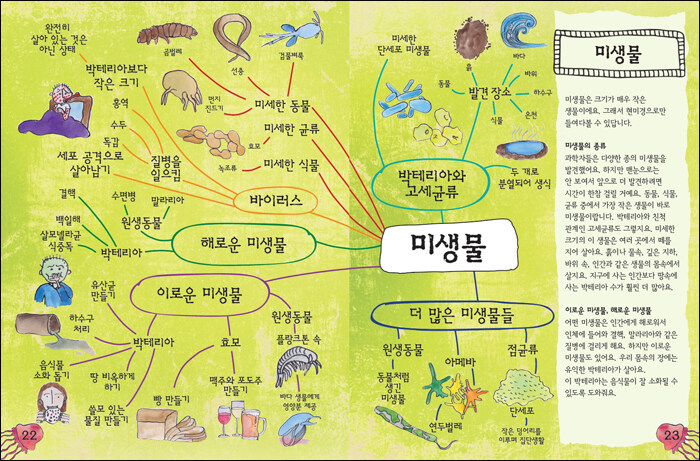 완전히
살아 있는 것은
아닌 상태
박테리아보다
작은 크기
홍역
수두
독감
세포 공격으로
살아남기
질병을
일으킴
바이러스
곰벌레
선충
겁물벼룩
먼지
진드기
미세한 동물
미세한 균류
효모
녹조류
미세한 식물
결핵
백일해
살모넬라균
식중독
수면병
말라리아
원생동물
박테리아
해로운 미생물
이로운 미생물
유산균
만들기
하수구
처리
음식물
소화 돕기
박테리아
땅 비옥하게
하기
쓸모 있는
물질 만들기
효모
빵 만들기
맥주와 포도주
만들기
원생동물
플랑크톤 속
바다 생물에게
영양분 제공
22
미세한
단세포 미생물
흙
바다
동물
발견 장소
바위
하수구
식물
온천
두 개로
분열되어 생식
박테리아와
고세균류
미생물
더 많은 미생물들
원생동물
동물처럼
생긴
미생물
아메바
연두벌레
점균류
단세포
작은 덩어리를
이루며 집단생활
미생물
미생물은 크기가 매우 작은
생물이에요. 그래서 현미경으로만
들여다볼 수 있답니다.
미생물의 종류
과학자들은 다양한 종의 미생물을
발견했어요. 하지만 맨눈으로는
안 보여서 앞으로 더 발견하려면
시간이 한참 걸릴 거예요. 동물, 식물,
균류 중에서 가장 작은 생물이 바로
미생물이랍니다. 박테리아와 친척
관계인 고세균류도 그렇지요. 미세한
크기의 이 생물은 여러 곳에서 떼를
지어 살아요. 흙이나 물속, 깊은 지하,
바위 속, 인간과 같은 생물의 몸속에서
살지요. 지구에 사는 인간보다 땅속에
사는 박테리아 수가 훨씬 더 많아요.
이로운 미생물, 해로운 미생물
어떤 미생물은 인간에게 해로워서
인체에 들어와 결핵, 말라리아와 같은
질병에 걸리게 해요. 하지만 이로운
미생물도 있어요. 우리 몸속의 장에는
유익한 박테리아가 살아요.
이 박테리아는 음식물이 잘 소화될 수
있도록 도와줘요.
23